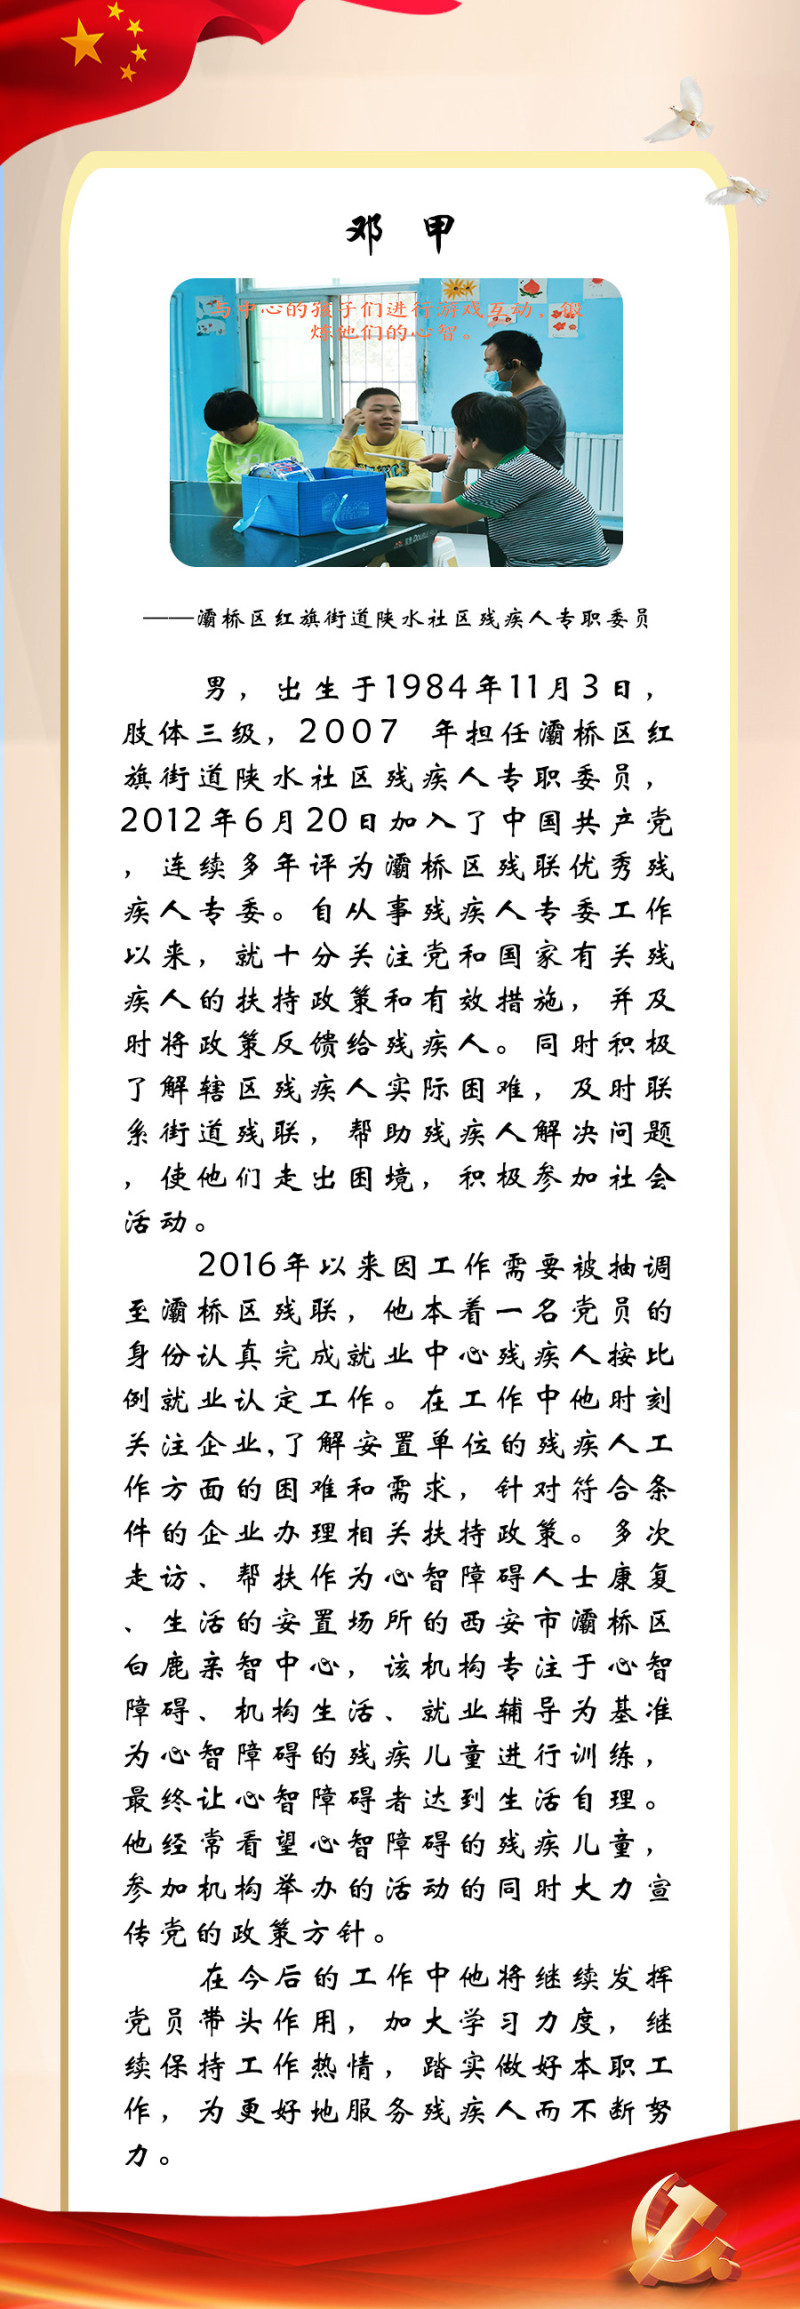 邓 甲
与中心的孩子们进行游戏互动，锻
炼他们的心智。
——灞桥区红旗街道陕水社区残疾人专职委员
男，出生于1984年11月3日，
肢体三级，2007 年担任灞桥区红
旗街道陕水社区残疾人专职委员，
2012年6月20日加入了中国共产党
，连续多年评为灞桥区残联优秀残
疾人专委。自从事残疾人专委工作
以来，就十分关注党和国家有关残
疾人的扶持政策和有效措施，并及
时将政策反馈给残疾人。同时积极
了解辖区残疾人实际困难，及时联
系街道残联，帮助残疾人解决问题
，使他们走出困境，积极参加社会
活动。
2016年以来因工作需要被抽调
至灞桥区残联，他本着一名党员的
身份认真完成就业中心残疾人按比
例就业认定工作。在工作中他时刻
关注企业,了解安置单位的残疾人工
作方面的困难和需求，针对符合条
件的企业办理相关扶持政策。多次
走访、帮扶作为心智障碍人士康复
、生活的安置场所的西安市灞桥区
白鹿亲智中心，该机构专注于心智
障碍、机构生活、就业辅导为基准
为心智障碍的残疾儿童进行训练，
最终让心智障碍者达到生活自理。
他经常看望心智障碍的残疾儿童，
参加机构举办的活动的同时大力宣
传党的政策方针。
在今后的工作中他将继续发挥
党员带头作用，加大学习力度，继
续保持工作热情，踏实做好本职工
作，为更好地服务残疾人而不断努
力。